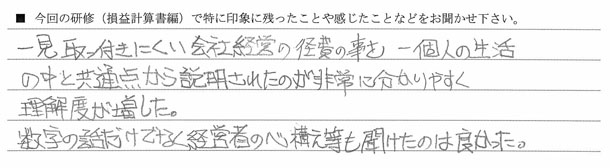 ■ 今回の研修（損益計算書編）で特に印象に残ったことや感じたことなどをお聞かせ下さい。
一見取っ付きにくい会社経営の経費の事を 一個人の生活
の中と共通点から説明されたのが非常に分かりやすく
理解度が増した。
数字の話だけでなく経営者の心構え等も聞けたのは良かった。